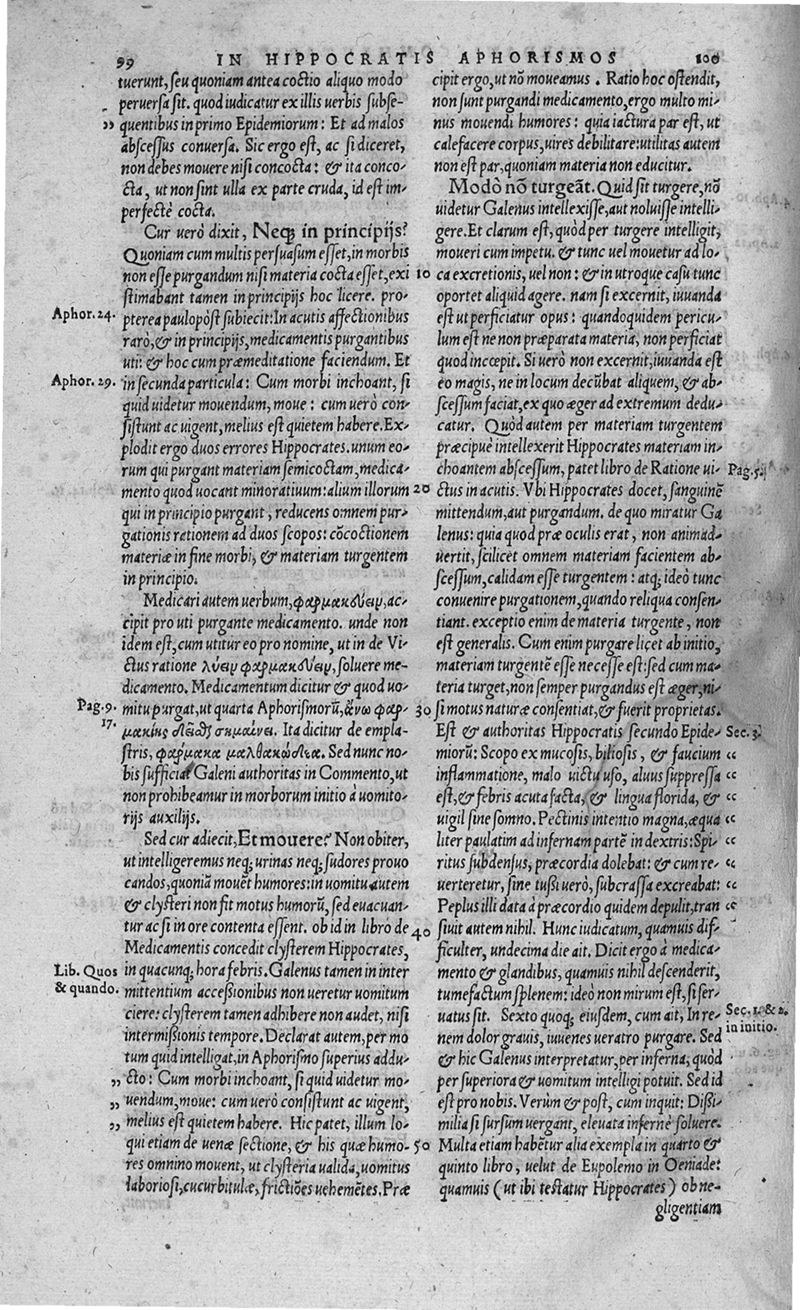 99 IN HIPPOCRATIS APHORISMOS 100
tuerunt, seu quoniam antea coctio aliquo modo
peruersa sit. quod iudicatur ex illis uerbis subse-
„ quentibus in primo Epidemiorum: Et ad malos
abscessus conuersa. Sic ergo est, ac si diceret,
non debes mouere nisi concocta: & ita conco-
cta, ut non sint ulla ex parte cruda, id est im-
perfectè cocta.
Cur uerò dixit, Neq; in principijs?
Quoniam cum multis persuasum esset, in morbis
non esse purgandum nisi materia cocta esset, exi
stimabant tamen in principijs hoc licere. pro-
Aphor. 24. pterea paulopòst subiecit: In acutis affectionibus
rarò, & in principijs, medicamentis purgantibus
uti: & hoc cum præmeditatione faciendum. Et
Aphor. 29. in secunda particula: Cum morbi inchoant, si
quid uidetur mouendum, moue: cum uerò con-
sistunt ac uigent, melius est quietem habere. Ex-
plodit ergo duos errores Hippocrates. unum eo-
rum qui purgant materiam semicoctam, medica-
mento quod uocant minoratiuum: alium illorum
qui in principio purgant, reducens omnem pur-
gationis rationem ad duos scopos: cōcoctionem
materiæ in fine morbi, & materiam turgentem
in principio.
Medicari autem uerbum, φαρμακεύειν, ac-
cipit pro uti purgante medicamento. unde non
idem est, cum utitur eo pro nomine, ut in de Vi-
ctus ratione λύειν φαρμακεύειν, soluere me-
dicamento. Medicamentum dicitur & quod uo-
Pag. 9. mitu purgat, ut quarta Aphorismorū, ἄνω φαρ-
17. μακίης σημαίνει. Ita dicitur de empla-
stris, φάρμακα μαλθακώδεα. Sed nunc no-
bis sufficiat Galeni authoritas in Commento, ut
non prohibeamur in morborum initio à uomito-
rijs auxilijs.
Sed cur adiecit, Et mouere? Non obiter,
ut intelligeremus neq; urinas neq; sudores prouo
candos, quoniā mouēt humores: in uomitu autem
& clysteri non fit motus humorū, sed euacuan-
tur ac si in ore contenta essent. ob id in libro de
Medicamentis concedit clysterem Hippocrates,
Lib. Quos in quacunq; hora febris. Galenus tamen in inter
& quando. mittentium accessionibus non ueretur uomitum
ciere: clysterem tamen adhibere non audet, nisi
intermissionis tempore. Declarat autem, per mo
tum quid intelligat, in Aphorismo superius addu-
„ cto: Cum morbi inchoant, si quid uidetur mo-
„ uendum, moue: cum uerò consistunt ac uigent,
„ melius est quietem habere. Hic patet, illum lo-
qui etiam de uenæ sectione, & his quæ humo-
res omnino mouent, ut clysteria ualida, uomitus
laboriosi, cucurbitulæ, frictiōes uehemētes. Præ
cipit ergo, ut nō moueamus. Ratio hoc ostendit,
non sunt purgandi medicamento, ergo multo mi-
nus mouendi humores: quia iactura par est, ut
calefacere corpus, uires debilitare: utilitas autem
non est par, quoniam materia non educitur.
Modò nō turgeāt. Quid sit turgere, nō
uidetur Galenus intellexisse, aut noluisse intelli-
gere. Et clarum est, quòd per turgere intelligit,
moueri cum impetu. & tunc uel mouetur ad lo-
10 ca excretionis, uel non: & in utroque casu tunc
oportet aliquid agere. nam si excernit, iuuanda
est ut perficiatur opus: quandoquidem pericu-
lum est ne non præparata materia, non perficiat
quod incœpit. Si uerò non excernit, iuuanda est
eo magis, ne in locum decūbat aliquem, & ab-
scessum faciat, ex quo æger ad extremum dedu-
catur. Quòd autem per materiam turgentem
præcipuè intellexerit Hippocrates materiam in-
choantem abscessum, patet libro de Ratione ui- Pag. 5.
20 ctus in acutis. Vbi Hippocrates docet, sanguinē
mittendum, aut purgandum. de quo miratur Ga
lenus: quia quod præ oculis erat, non animad-
uertit, scilicet omnem materiam facientem ab-
scessum, calidam esse turgentem: atq; ideò tunc
conuenire purgationem, quando reliqua consen-
tiant. exceptio enim de materia turgente, non
est generalis. Cum enim purgare licet ab initio,
materiam turgentē esse necesse est: sed cum ma-
teria turget, non semper purgandus est æger, ni-
30 si motus naturæ consentiat, & fuerit proprietas.
Est & authoritas Hippocratis secundo Epide- Sec. 3.
miorū: Scopo ex mucosis, biliosis, & faucium “
inflammatione, malo uictu uso, aluus suppressa “
est, & febris acuta facta, & lingua florida, & “
uigil sine somno. Pectinis intentio magna, æqua “
liter paulatim ad infernam partē in dextris: Spi- “
ritus subdensus, præcordia dolebat: & cum re- “
uerteretur, sine tussi uerò, subcrassa excreabat: “
Peplus illi data à præcordio quidem depulit, tran “
40 siuit autem nihil. Hunc iudicatum, quamuis dif-
ficulter, undecima die ait. Dicit ergo à medica-
mento & glandibus, quamuis nihil descenderit,
tumefactum splenem: ideò non mirum est, si ser-
uatus sit. Sexto quoq; eiusdem, cum ait, In re- Sec. 1. & 2.
nem dolor grauis, iuuenes ueratro purgare. Sed in initio.
& hic Galenus interpretatur, per inferna, quòd
per superiora & uomitum intelligi potuit. Sed id
est pro nobis. Verùm & post, cum inquit: Dissi-
milia si sursùm uergant, eleuata infernè soluere.
50 Multa etiam habētur alia exempla in quarto &
quinto libro, uelut de Eupolemo in Oeniade:
quamuis (ut ibi testatur Hippocrates) ob ne-
gligentiam